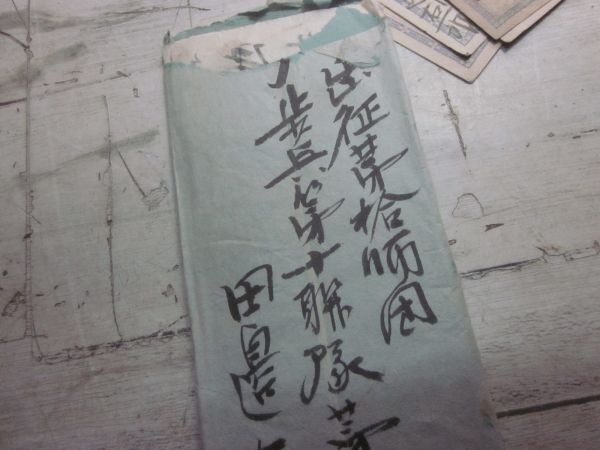 出征第拾師団
歩兵第十聯隊第
田邉